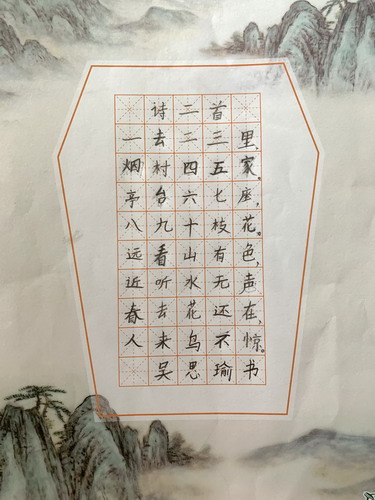 诗二首
一去二三里，
烟村四五家，
亭台六七座，
八九十枝花。
远看山有色，
近听水无声，
春去花还在，
人来鸟不惊。
吴思瑜书